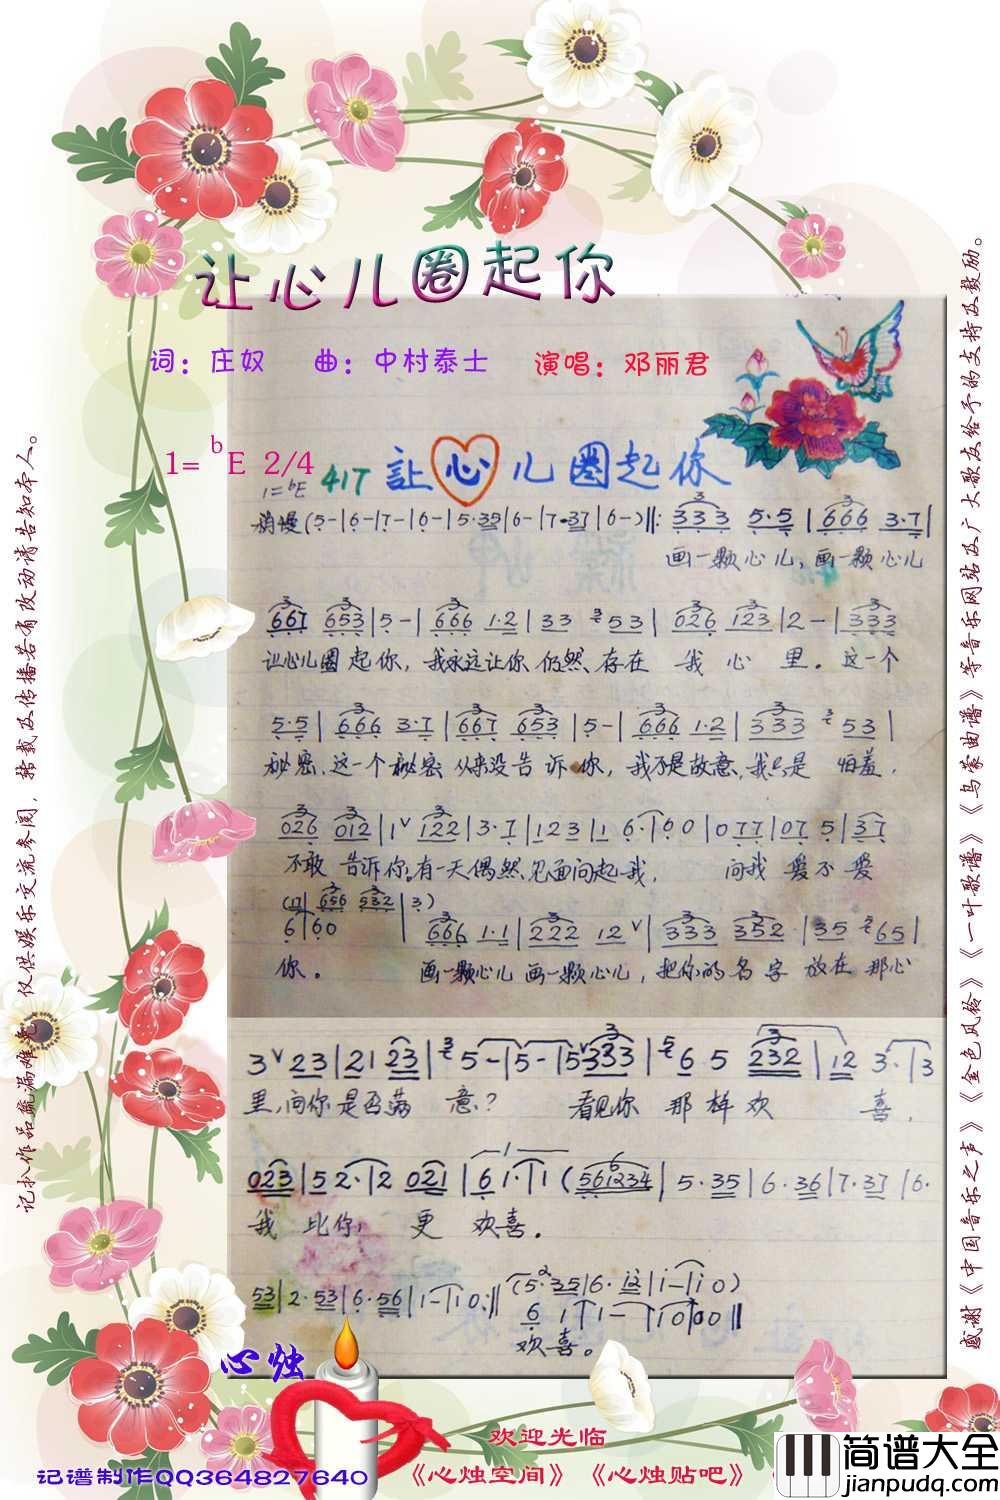 让心儿圈起你
词：庄奴 曲：中村泰士 演唱：邓丽君
1=ᵇE 2/4
1=ᵇE 417 註心儿圈起你
稍慢(5-|6-|7-|6-|5·35|6-|7·37|6-)‖:333 5·5|666 3·7|
画一颗心儿，画一颗心儿
667 653|5-|666 1·2|33 ³53|026 123|2-|333
让心儿圈起你，我永远让你仍然存在我心里。这一个
5·5|666 3·7|667 653|5-|666 1·2|333 ³53|
秘密，这一个秘密从来没告诉你，我不是故意，我只是怕羞，
026 012|1ᵛ122|3·7|123|1 6·|60|077|07 5|37
不敢告诉你。有一天偶然，见面问起我，问我爱不爱
656 532|3)
6|60 |666 1·1|222 12ᵛ|333 352·|35 ⁵65|
你。画一颗心儿画一颗心儿，把你的名字放在那心
3ᵛ23|21 23|³5-|5-|5ᵛ333|⁵6·5 232|12 3·|3
里，问你是否满意？看见你那样欢喜，
023|5 2·|2 021|6 1·|1 (561234|5·35|6·36|7·37|6·
我比你，更欢喜。
53|2·53|6·56|1-|10:‖(5·35|6·12|i-|i0)
6 1|1-|10|00‖
欢喜。
心烛
欢迎光临
记谱制作QQ364827640 《心烛空间》《心烛贴吧》
记扒作品疏漏难免，仅供娱乐交流参阅，转载及传播若有改动请告知本人。
感谢《中国音乐之声》《金色风铃》《一叶歌谱》《乌蒙曲谱》等音乐网站及广大歌友给予的支持及鼓励。
简谱大全
jianpudq.com